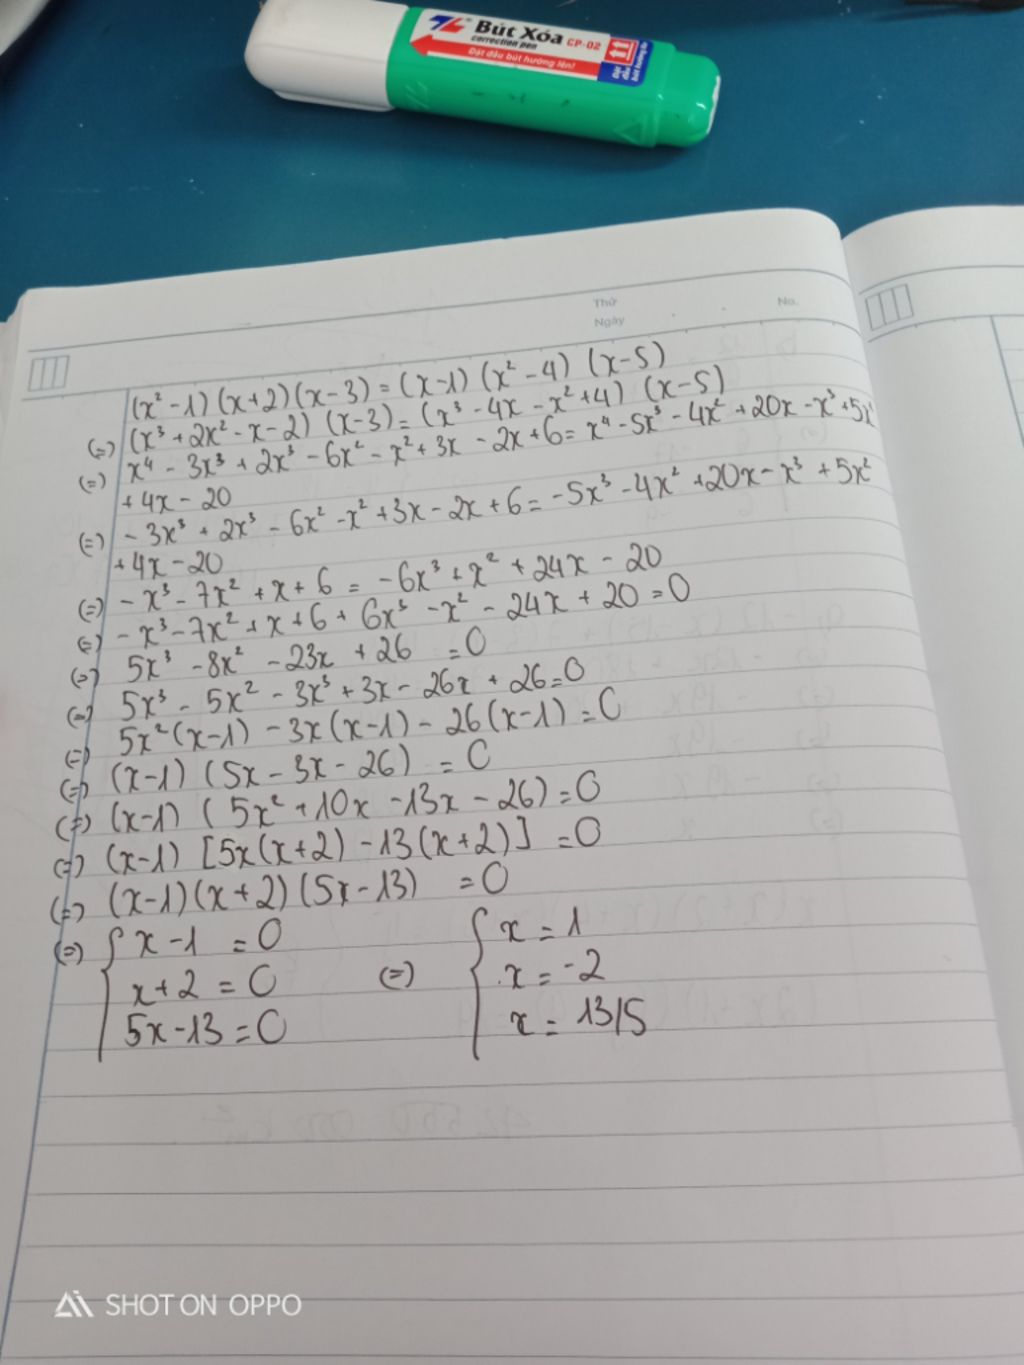 Bút Xóa CP-02
correction pen
Đặt đầu bút hướng lên!
Thứ
No.
Ngày
(x² - 1) (x+2) (x - 3) = (x-1) (x² - 4) (x-5)
(=) (x³ + 2x² - x - 2) (x-3) = (x³ - 4x - x² + 4) (x-5)
(=) x⁴ - 3x³ + 2x³ - 6x² - x² + 3x - 2x + 6 = x⁴ - 5x³ - 4x² + 20x - x³ + 5x²
+ 4x - 20
(=) - 3x³ + 2x³ - 6x² - x² + 3x - 2x + 6 = - 5x³ - 4x² + 20x - x³ + 5x²
+ 4x - 20
(=) - x³ - 7x² + x + 6 = - 6x³ + x² + 24x - 20
(=) - x³ - 7x² + x + 6 + 6x³ - x² - 24x + 20 = 0
(=) 5x³ - 8x² - 23x + 26 = 0
(=) 5x³ - 5x² - 3x³ + 3x - 26x + 26 = 0
(=) 5x² (x-1) - 3x (x-1) - 26 (x-1) = 0
(=) (x-1) (5x - 3x - 26) = 0
(=) (x-1) ( 5x² + 10x - 13x - 26) = 0
(=) (x-1) [5x(x+2) - 13 (x+2)] = 0
(=) (x-1) (x+2) (5x - 13) = 0
(=) { x - 1 = 0 { x = 1
x + 2 = 0 (=) x = -2
5x - 13 = 0 x = 13/5
SHOT ON OPPO